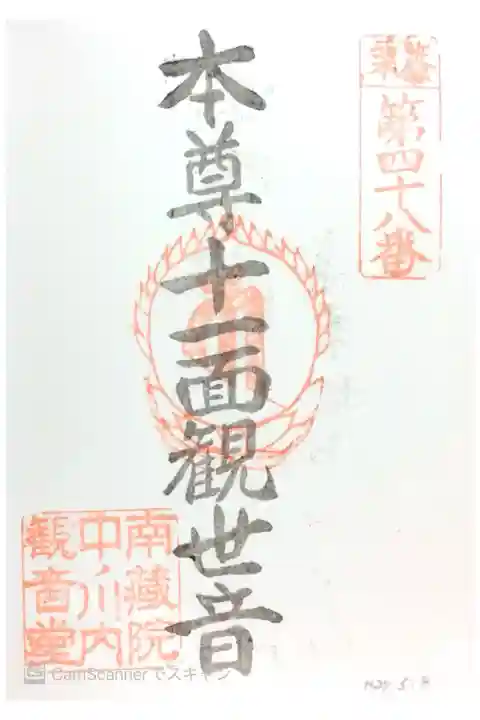 第四十八番
本尊十一面観世音
南蔵院
中ノ川内
観音堂
CamScanner でスキャン